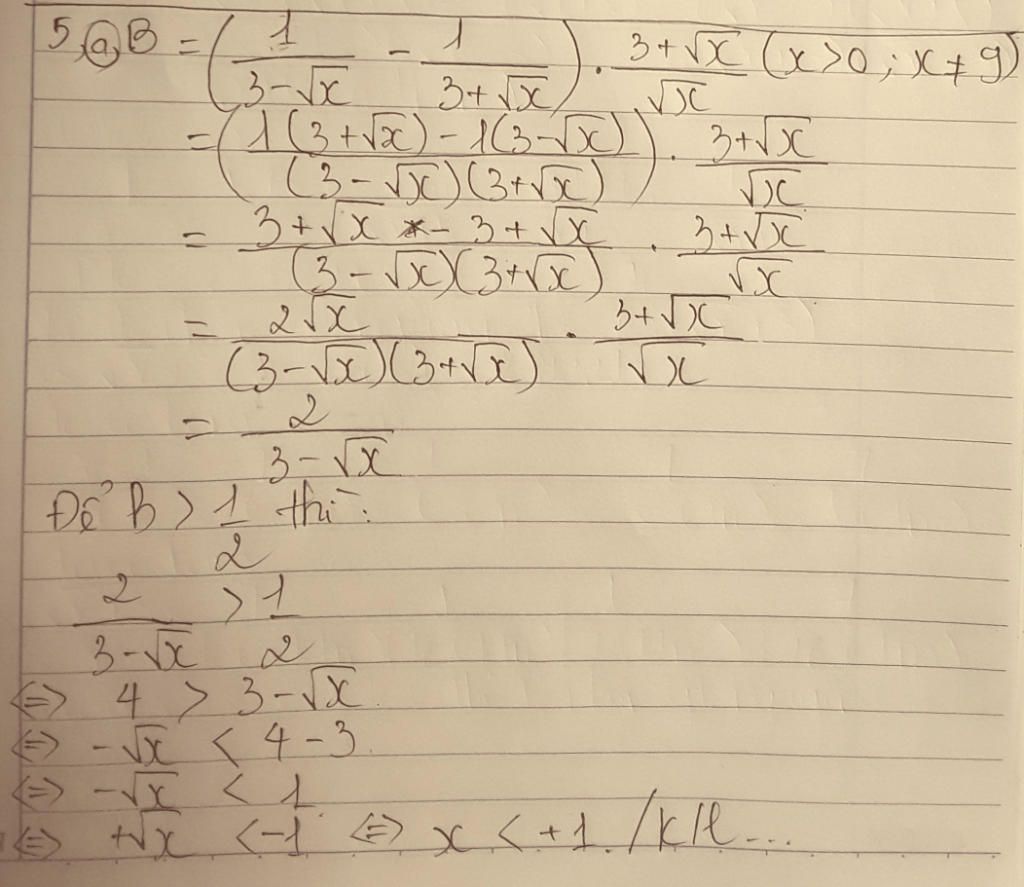 5, a, B = (1/(3-√x) - 1/(3+√x)) . (3+√x)/√x (x>0; x≠9)
= (1(3+√x) - 1(3-√x))/((3-√x)(3+√x)) . (3+√x)/√x
= (3+√x - 3+√x)/((3-√x)(3+√x)) . (3+√x)/√x
= 2√x/((3-√x)(3+√x)) . (3+√x)/√x
= 2/(3-√x)
Để B > 1/2 thì:
2/(3-√x) > 1/2
<=> 4 > 3-√x
<=> -√x < 4-3
<=> -√x < 1
<=> +√x < -1 <=> x < +1. /KH...